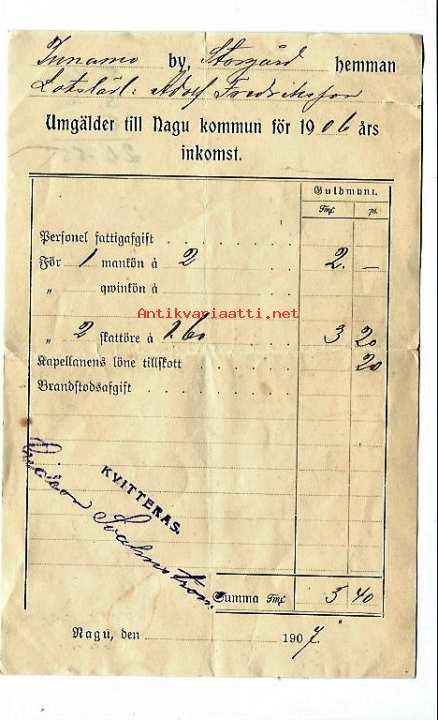 by, Storgård hemman
Adolf Fredriksson
Umgälder till Nagu kommun för 1906 års
inkomst.
Guldmynt.
Fmf. pi.
Personel fattigafgift
För 1 mankön á 2 2. —
„ qwinkön á
Antikvariaatti.net
„ 2 skattöre á 1 60 3 20
Kapellanens löne tillskott 20
Brandstodsafgift
KVITTERAS.
Summa Fmf. 5 40
Nagu, den 1907.